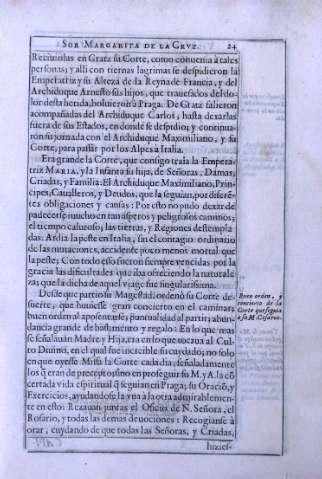 SOR MARGARITA DE LA CRVZ. 24
Recibiolas en Gratz su Corte, como convenia à tales
personas; y alli con tiernas lagrimas se despidieron la
Emperatriz y su Alteza de la Reyna de Francia, y del
Archiduque Arnesto sus hijos, que traspasados del do-
lor desta herida, bolvieron à Praga. De Gratz salieron
acompañadas del Archiduque Carlos, hasta dexarlas
fuera de sus Estados, en donde se despidiò; y continua-
ron su jornada con el Archiduque Maximiliano, y su
Corte, para passar por los Alpes à Italia.
Era grande la Corte, que consigo traìa la Empera-
triz MARIA, y la Infanta su hija, de Señoras, Damas,
Criadas, y Familia: El Archiduque Maximiliano, Prin-
cipes, Cavalleros, y Deudos, que la seguian, por diferē-
tes obligaciones y causas: Por esto no pudo dexar de
padecerse mucho en tan asperos y peligrosos caminos;
el tiempo caluroso; las tierras, y Regiones destempla-
das: Ardia la peste en Italia, sin el contagio ordinario
de las mutaciones, accidente poco menos mortal que
la peste; Con todo esso fueron siempre vencidas por la
gracia las dificultades que iba ofreciendo la naturale-
za; que la dicha de aquel viage fue singularissima.
Desde que partiò su Magestad, ordenò su Corte de
suerte, que huviesse gran concierto en el caminar;
buen orden al aposentarse; puntualidad al partir; abun-
dancia grande de bastimento y regalo: En lo que mas
se señalauan Madre y Hija, era en lo que tocaua al Cul-
to Diuino, en el qual fue increible su cuydado; no solo
en que oyesse Missa la Corte cada dia, señaladamente
los q̃ eran de precepto; sino en proseguir su M. y A. la cō
certada vida espiritual q̃ seguian en Praga; su Oraciō, y
Exercicios, ayudandose la vna à la otra admirablemen-
te en esto: Rezauan juntas el Oficio de N. Señora, el
Rosario, y todas las demas deuociones: Recogianse à
orar, cuydando de que todas las Señoras, y Criadas,
hizies-
Buen orden, y
concierto de la
Corte que seguia
à su M. Cesarea.